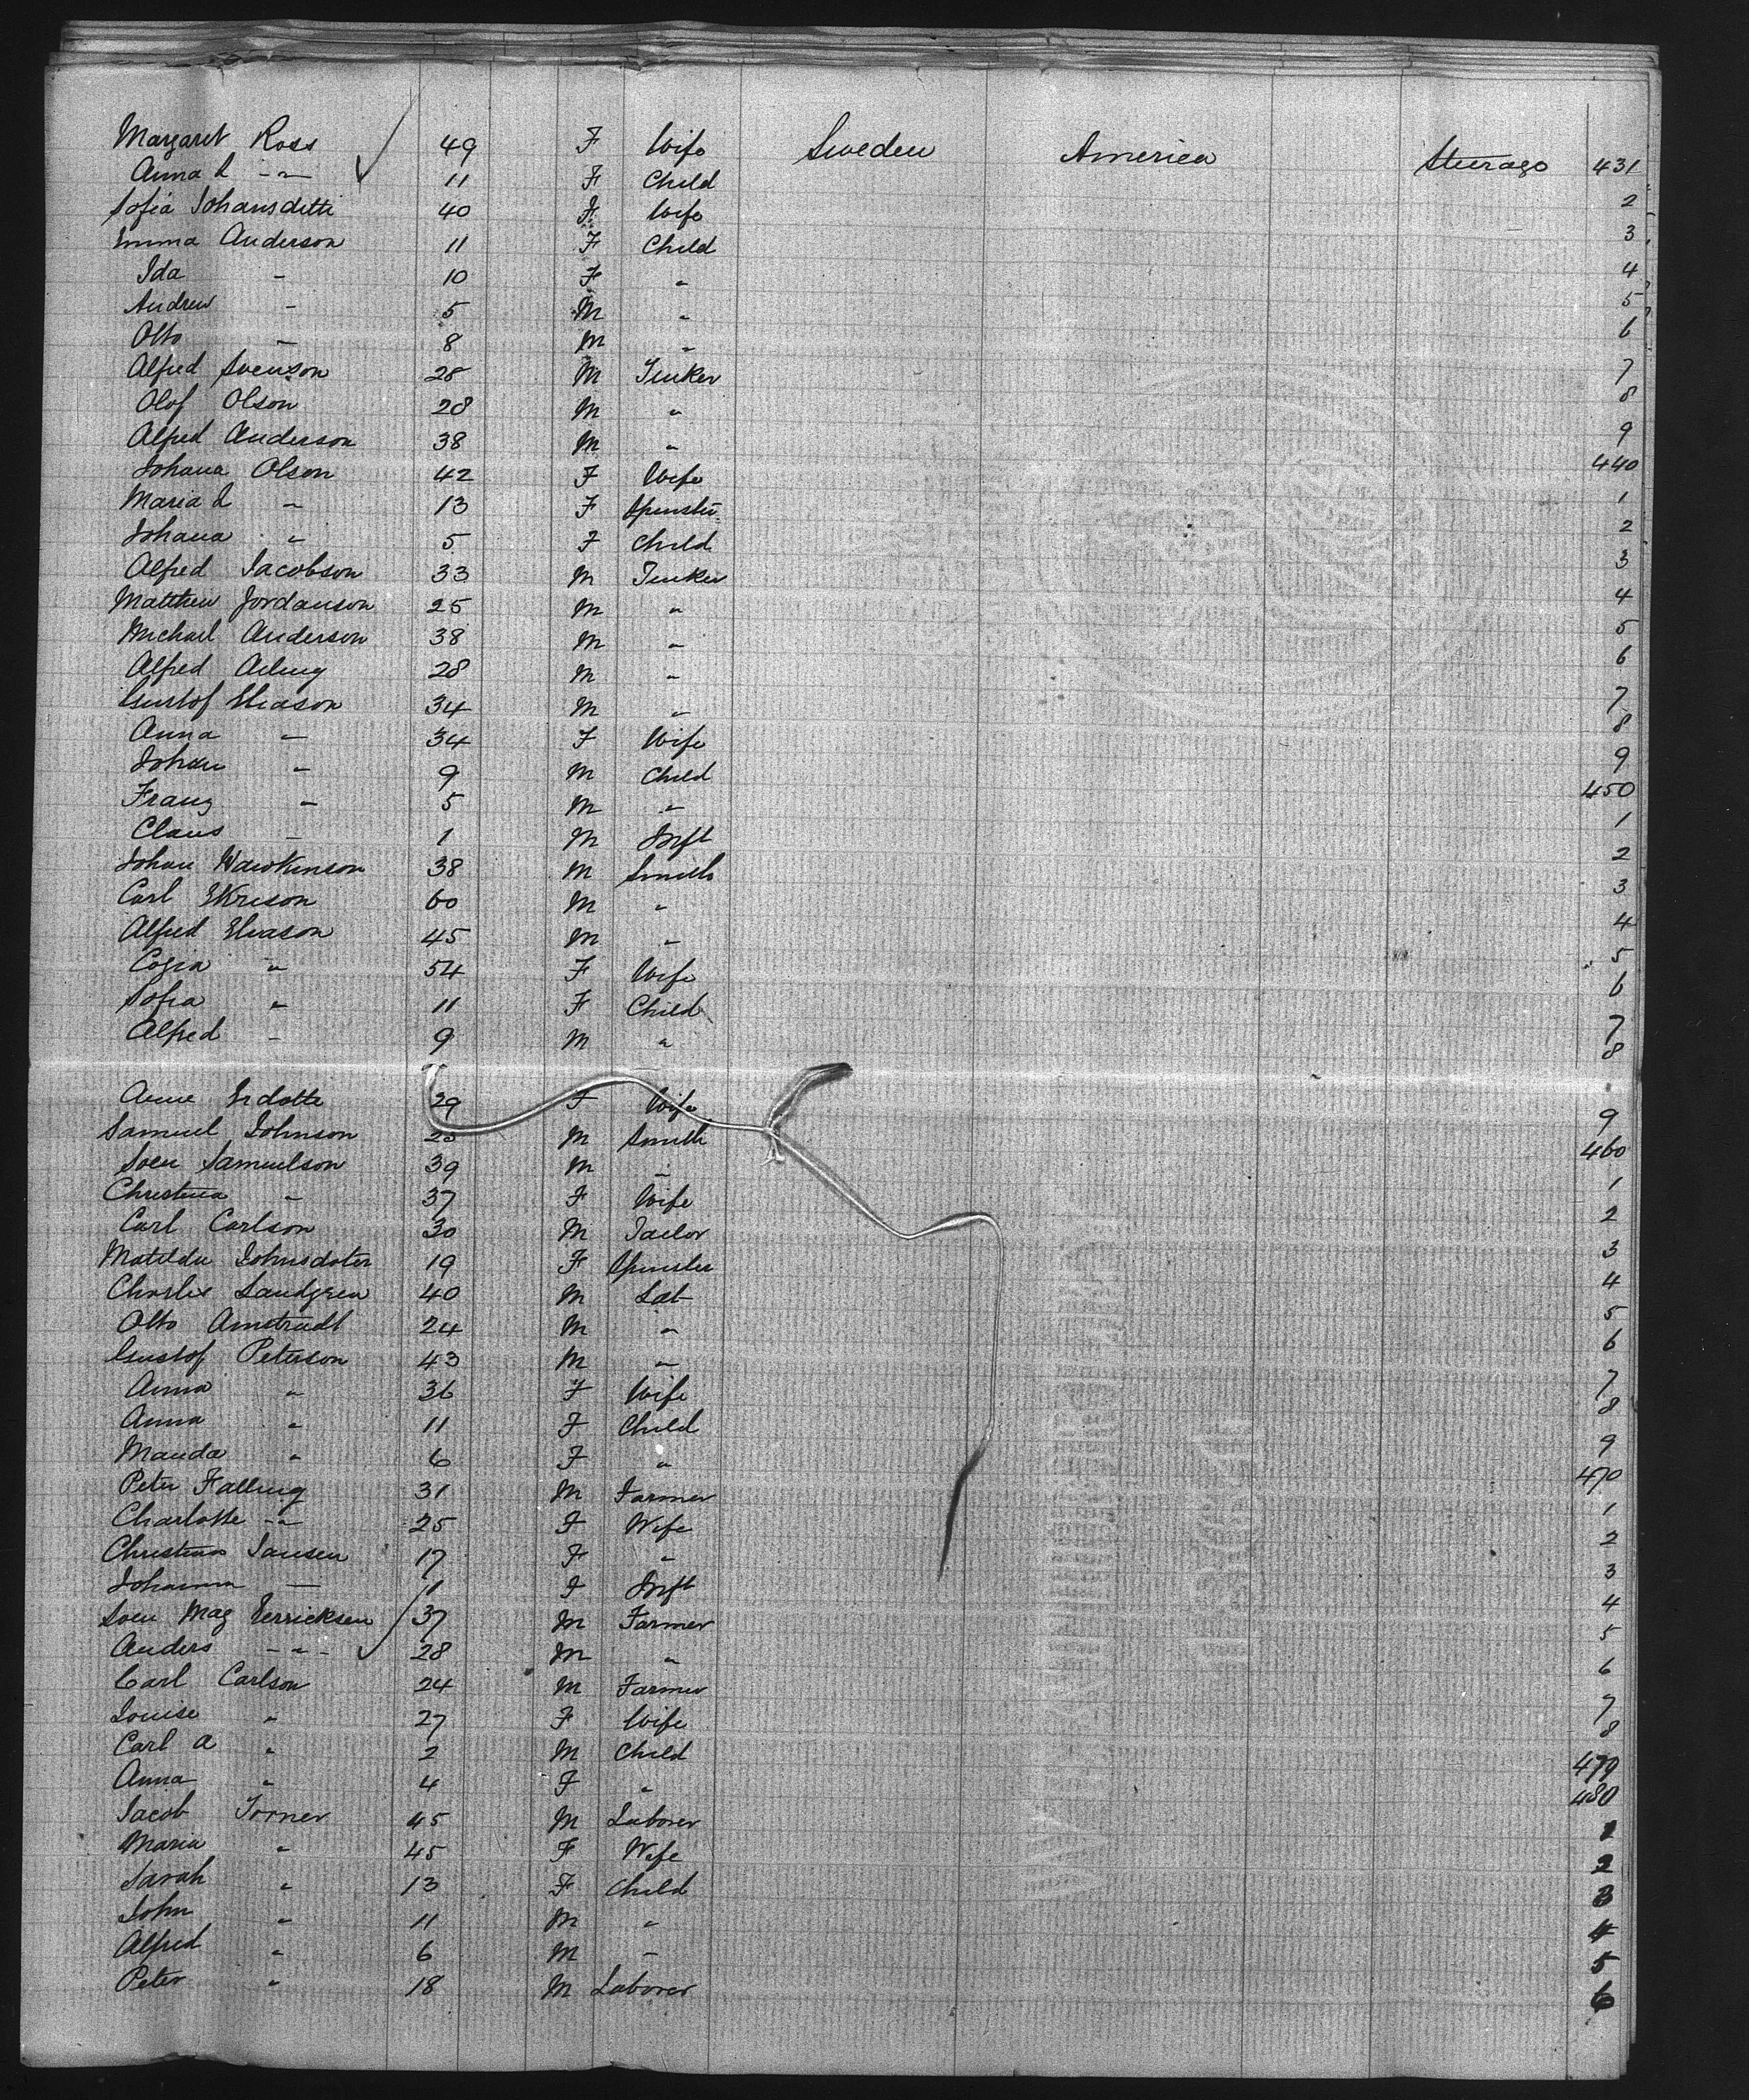 Margaret Ross 49 F Wife Sweden America Steerage 431
Anna L -"- 11 F Child 2
Sofia Johansditti 40 F Wife 3
Emma Anderson 11 F Child 4
Ida - 10 F " 5
Andrew - 5 M " 6
Otto - 8 M " 7
Alfred Svenson 28 M Tinker 8
Olof Olson 28 M " 9
Alfred Anderson 38 M " 440
Johana Olson 42 F Wife 1
Maria L " 13 F Spinster 2
Johana " 5 F Child 3
Alfred Jacobson 33 M Tinker 4
Matthew Jordanson 25 M " 5
Michael Anderson 38 M " 6
Alfred 28 M " 7
Gustof Eliason 34 M " 8
Anna " 34 F Wife 9
Johan " 9 M Child 450
Franz " 5 M " 1
Claus - 1 M Inft 2
Johan Hawkinson 38 M Smith 3
Carl 60 M " 4
Alfred Eliason 45 M " 5
" 54 F Wife 6
Sofia " 11 F Child 7
Alfred - 9 M " 8
Anne 29 F Wife 9
Samuel Johnson M Smith 460
Sven Samuelson 39 M " 1
Christina " 37 F Wife 2
Carl Carlson 30 M Tailor 3
Matilda Johnsdoter 19 F Spinster 4
Charles Sandgren 40 M Lab 5
Otto Amstradt 24 M " 6
Gustof Peterson 43 M " 7
Anna " 36 F Wife 8
Anna " 11 F Child 9
Manda " 6 F " 470
Peter Falling 31 M Farmer 1
Charlotte -"- 25 F Wife 2
Christina Jansen 17 F " 3
Johanna — 1 F Inft 4
Sven Mag Herricksen 37 M Farmer 5
Anders -"- 28 M " 6
Carl Carlson 24 M Farmer 7
Louise " 27 F Wife 8
Carl A " 2 M Child 479
Anna " 4 F " 480
Jacob Torner 45 M Laborer 1
Maria " 45 F Wife 2
Sarah " 13 F Child 3
John " 11 M " 4
Alfred " 6 M - 5
Peter " 18 M Laborer 6